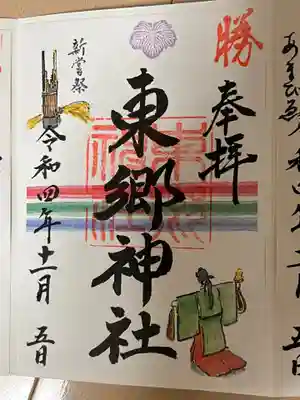 勝
奉拝
東郷神社
新嘗祭
令和四年十一月五日